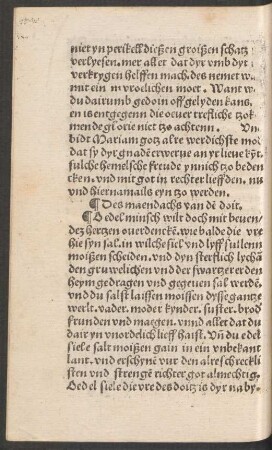 niet yn perikell dießen groißen schatz
verlyesen. mer all et dat dyr vmb dyt
verkrygen helffen mach. des nemet w
mit ein m vroelichen moet. Want w
du dairumb gedoin off gelyden kans,
en is entgegenn die oeuer treffliche tzok
mende glorie niet tzo achtenn. Vn
bidt Mariam gotz alre werdichste mo
dat sy dyr gnadē erwerue an yr lieue kyt.
sulche hemelsche freude ynnich tzo beden
cken. vnd mit got in rechter lieffden. nu
vnd hiernamails eyn tzo werden.
¶ Des maendachs van dē doit.
¶ O edel minsch wilt doch mit beuen/
dez hertzen ouerdenckē. wie balde die vre
hie syn sal. in wilche siel vnd lyff sullenn
moißen scheiden. vnd dyn sterflich lychā
den gruwelichen vnd der swartzer erden
heym gedragen vnd gegeuen sal werdē.
vnd du salst laissen moissen dysse gantze
werlt. vader. moder kynder. suster. brod
frunden vnd maegen. vnnd allet dat du
dair yn vnordelich lieff haist. Vn̄ du edel
siele salt moißen gain in ein vnbekant
lant. vnd erschynē vur den alre schreckli
sten vnd strengē richter got almechtig.
O edel siele die vre des doitz is dyr naby.